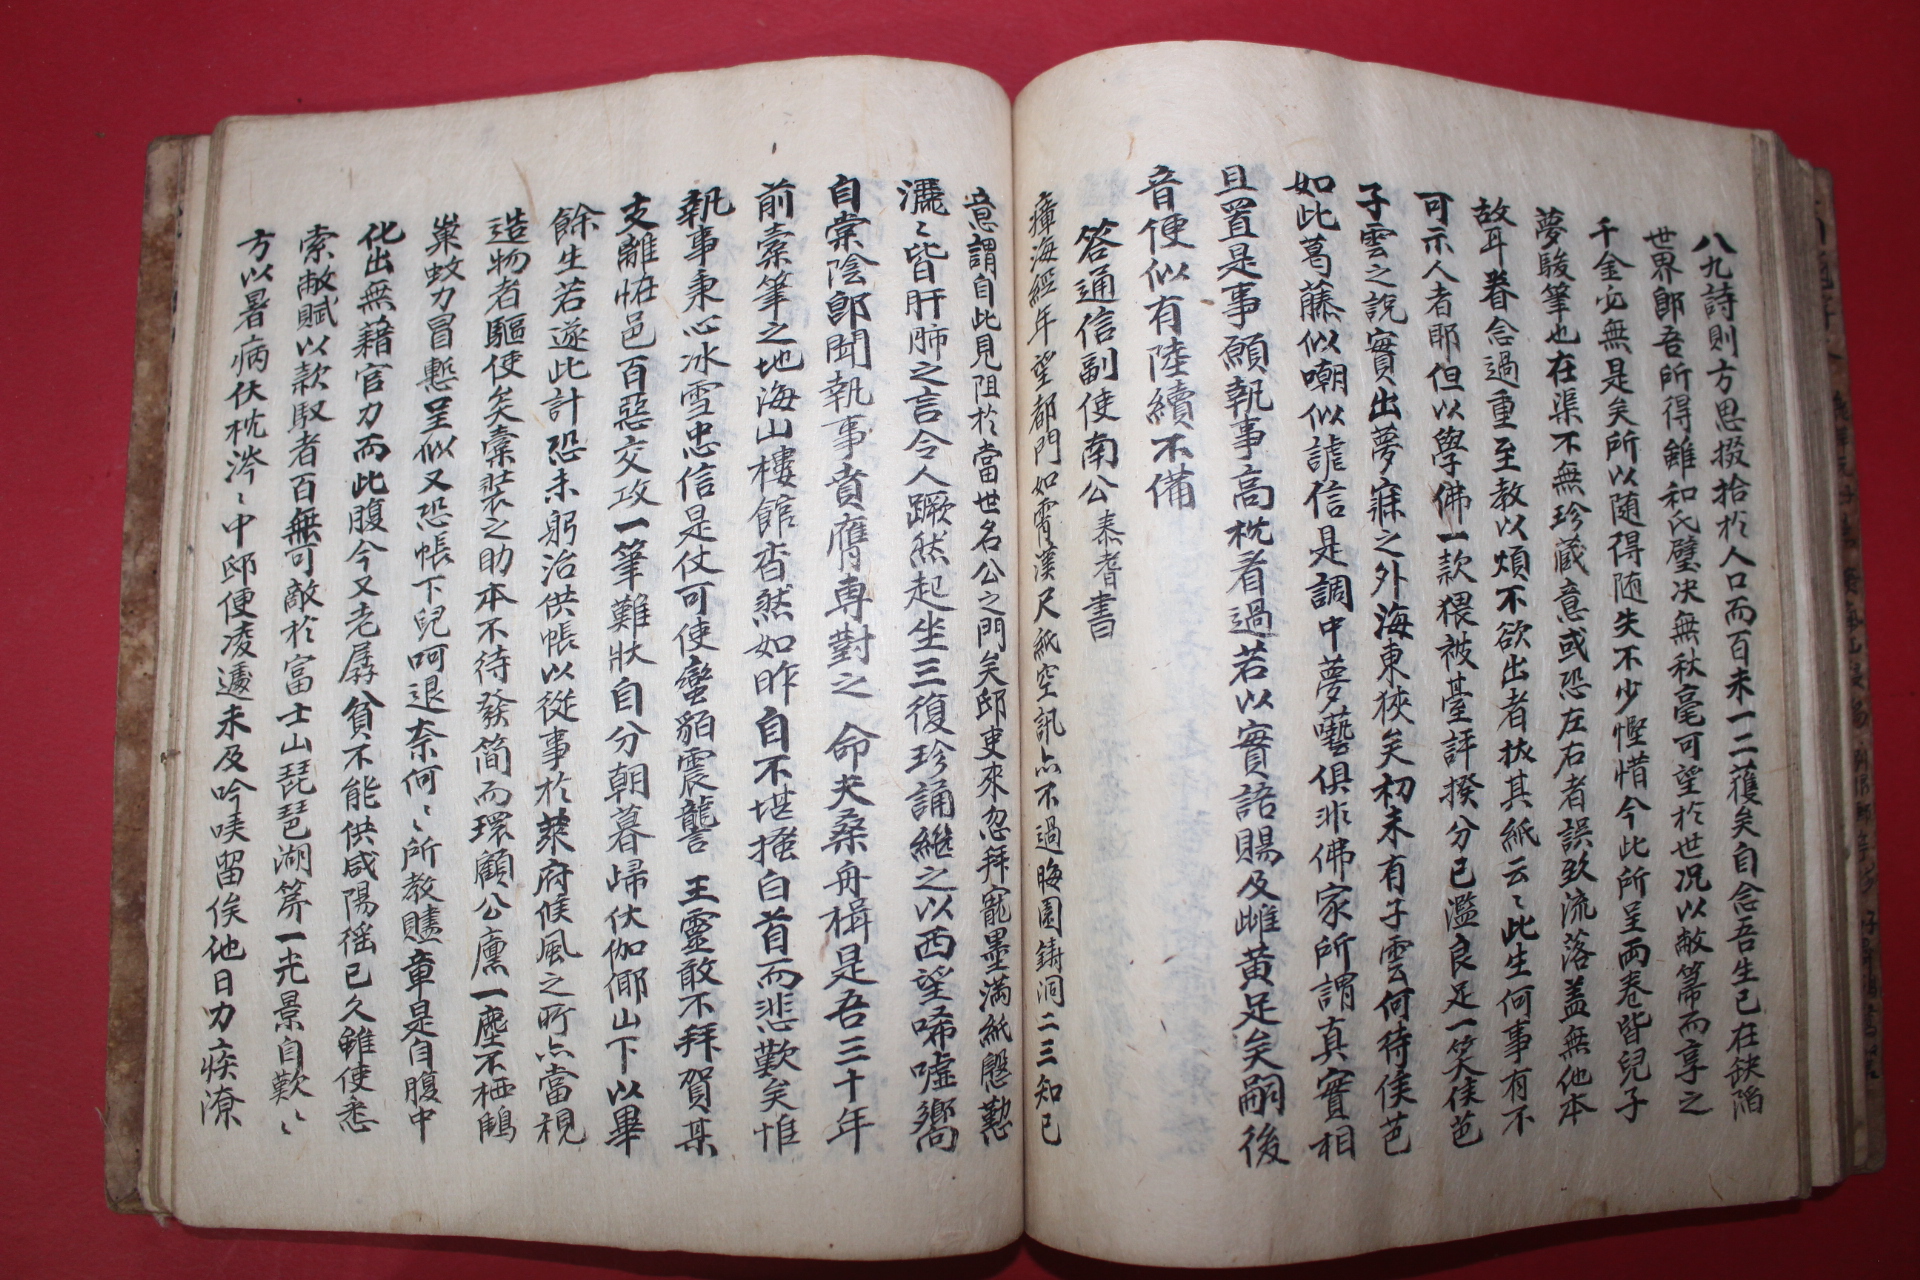 八九詩則方思掇拾於人口而百未一二獲矣自念吾生已在缺陷
世界郎吾所得雖和氏璧决無秋毫可望於世况以敝箒而享之
千金宓無是矣所以随得随失不少慳惜今此所呈両卷皆兒子
夢駿筆也在渠不無珍藏意或恐左右者誤致流落盖無他本
故耳眷念過重至教以煩不欲出者拔其紙云〻此生何事有不
可示人者耶但以學佛一款猥被䑓評揆分已濫良足一笑侯芭
子雲之說實出夢寐之外海東狹矣初未有子雲何待侯芭
如此葛藤似嘲似謔信是調中夢囈俱非佛家所謂真實相
且置是事願執事高枕看過若以實語賜及雌黄足矣嗣後
音便似有陸續不備
答通信副使南公泰耆書
瘴海經年望都門如霄漢尺紙空訊亦不過晦園鑄洞二三知已
意謂自此見阻於當世名公之門矣邸吏來忽拜寵墨滿紙慇懃
灑〻皆肝肺之言令人蹶然起坐三復珍誦繼之以西望唏噓嚮
自棠陰郎聞執事賁膺専對之 命夫桑舟楫是吾三十年
前槖筆之地海山樓館杳然如昨自不堪搔白首而悲歎矣惟
執事秉心冰雪忠信是仗可使蠻貊震讋 王靈敢不拜賀某
支離恠邑百惡交攻一筆難狀自分朝暮歸伏伽倻山下以畢
餘生若遂此計恐未躬治供帳以從事於萊府候風之所亦當視
造物者驅使矣槖裝之助本不待發簡而環顧公廪一塵不栖鵑
巢蚊力冒慙呈似又恐帳下兒呵退奈何〻所教贐章是自腹中
化出無藉官力而此腹今又老孱貧不能供咸陽徭已久雖使悉
索敝賦以款馭者百無可敵於富士山琵琶湖筭一光景自歎〻
方以暑病伏枕涔〻中邸便凌遽未及吟唉留俟他日力疾潦